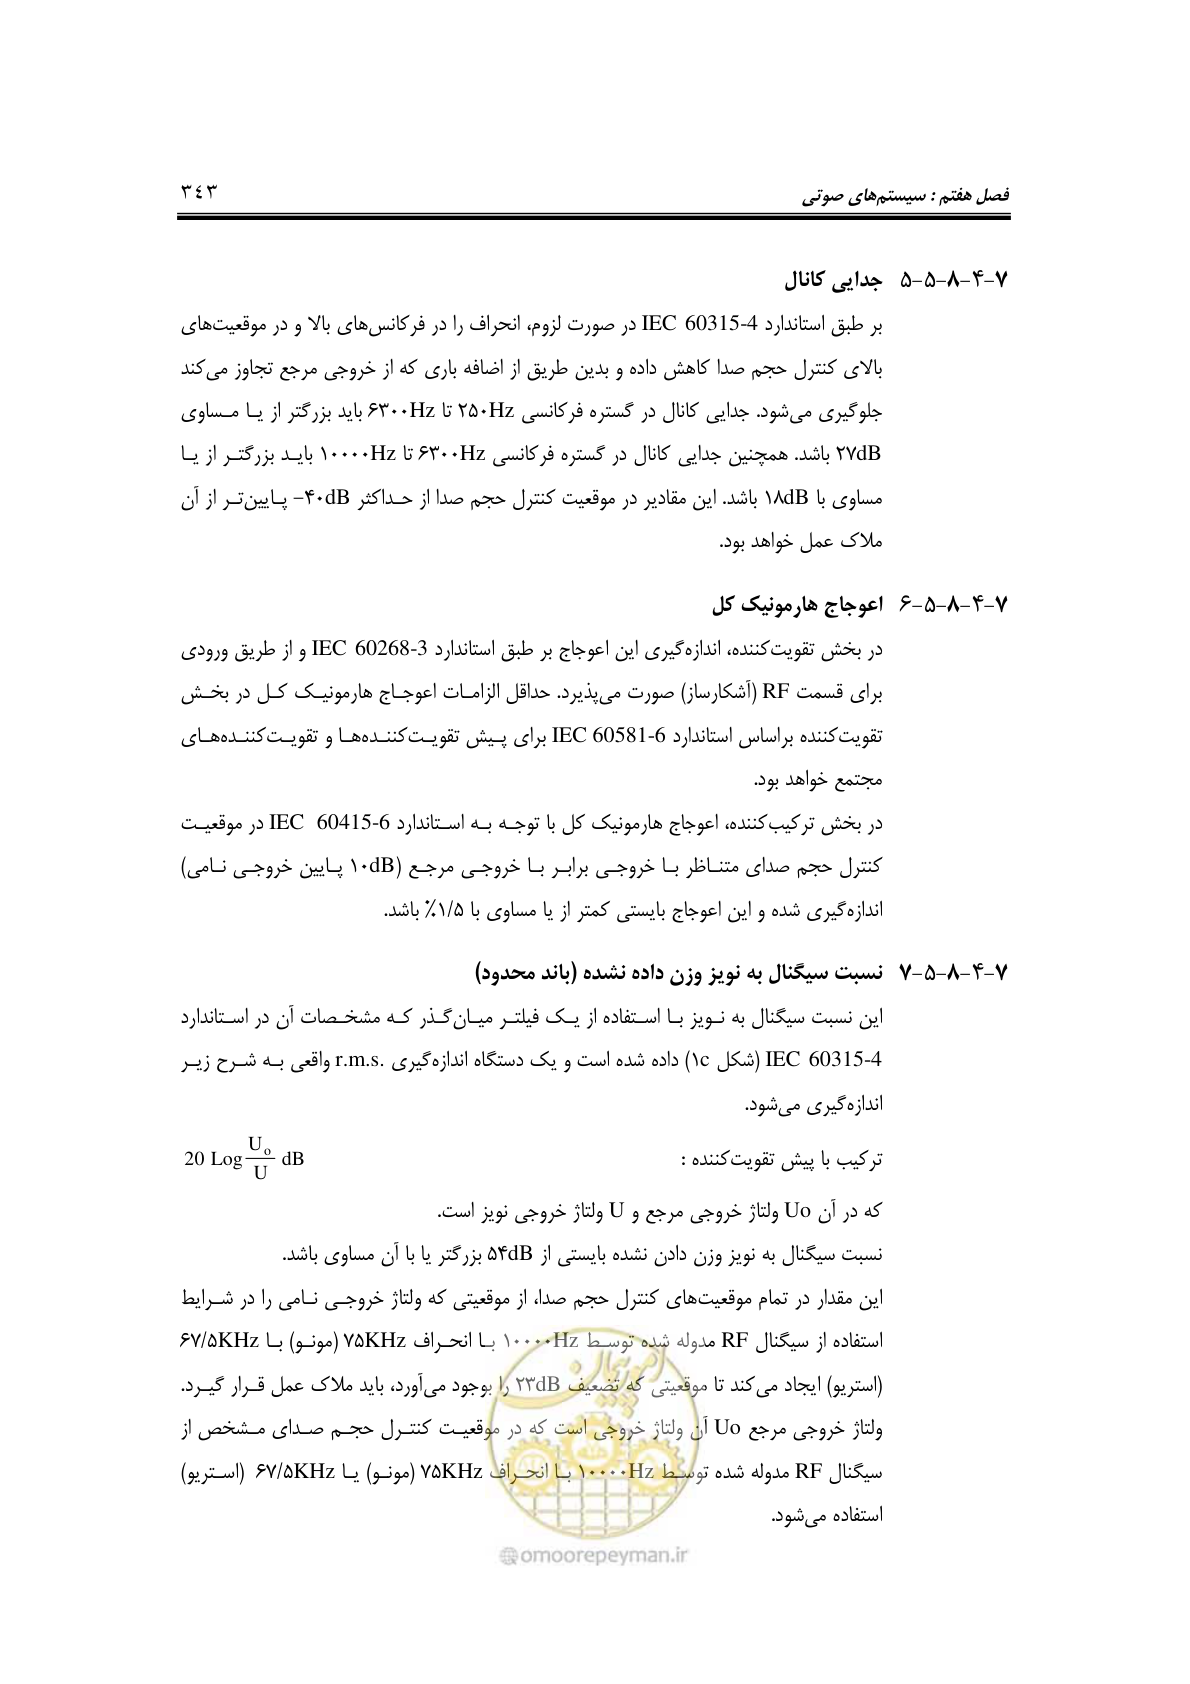 فصل هفتم : سیستم‌های صوتی ٣٤٣
۷-۴-۸-۵-۵ جدایی کانال
بر طبق استاندارد IEC 60315-4 در صورت لزوم، انحراف را در فرکانس‌های بالا و در موقعیت‌های
بالای کنترل حجم صدا کاهش داده و بدین طریق از اضافه باری که از خروجی مرجع تجاوز می‌کند
جلوگیری می‌شود. جدایی کانال در گستره فرکانسی ۲۵۰Hz تا ۶۳۰۰Hz باید بزرگتر از یا مساوی
۲۷dB باشد. همچنین جدایی کانال در گستره فرکانسی ۶۳۰۰Hz تا ۱۰۰۰۰Hz باید بزرگتر از یا
مساوی با ۱۸dB باشد. این مقادیر در موقعیت کنترل حجم صدا از حداکثر ۴۰dB- پایین‌تر از آن
ملاک عمل خواهد بود.
۷-۴-۸-۵-۶ اعوجاج هارمونیک کل
در بخش تقویت‌کننده، اندازه‌گیری این اعوجاج بر طبق استاندارد IEC 60268-3 و از طریق ورودی
برای قسمت RF (آشکارساز) صورت می‌پذیرد. حداقل الزامات اعوجاج هارمونیک کل در بخش
تقویت‌کننده براساس استاندارد IEC 60581-6 برای پیش تقویت‌کننده‌ها و تقویت‌کننده‌های
مجتمع خواهد بود.
در بخش ترکیب‌کننده، اعوجاج هارمونیک کل با توجه به استاندارد IEC 60415-6 در موقعیت
کنترل حجم صدای متناظر با خروجی برابر با خروجی مرجع (۱۰dB پایین خروجی نامی)
اندازه‌گیری شده و این اعوجاج بایستی کمتر از یا مساوی با ۱/۵٪ باشد.
۷-۴-۸-۵-۷ نسبت سیگنال به نویز وزن داده نشده (باند محدود)
این نسبت سیگنال به نویز با استفاده از یک فیلتر میان‌گذر که مشخصات آن در استاندارد
IEC 60315-4 (شکل ۱c) داده شده است و یک دستگاه اندازه‌گیری r.m.s. واقعی به شرح زیر
اندازه‌گیری می‌شود.
ترکیب با پیش تقویت‌کننده : 20 Log U₀/U dB
که در آن Uo ولتاژ خروجی مرجع و U ولتاژ خروجی نویز است.
نسبت سیگنال به نویز وزن دادن نشده بایستی از ۵۴dB بزرگتر یا با آن مساوی باشد.
این مقدار در تمام موقعیت‌های کنترل حجم صدا، از موقعیتی که ولتاژ خروجی نامی را در شرایط
استفاده از سیگنال RF مدوله شده توسط ۱۰۰۰۰Hz با انحراف ۷۵KHz (مونو) با ۶۷/۵KHz
(استریو) ایجاد می‌کند تا موقعیتی که تضعیف ۲۳dB را بوجود می‌آورد، باید ملاک عمل قرار گیرد.
ولتاژ خروجی مرجع Uo آن ولتاژ خروجی است که در موقعیت کنترل حجم صدای مشخص از
سیگنال RF مدوله شده توسط ۱۰۰۰۰Hz با انحراف ۷۵KHz (مونو) یا ۶۷/۵KHz (استریو)
استفاده می‌شود.
امور پیمان
@omoorepeyman.ir